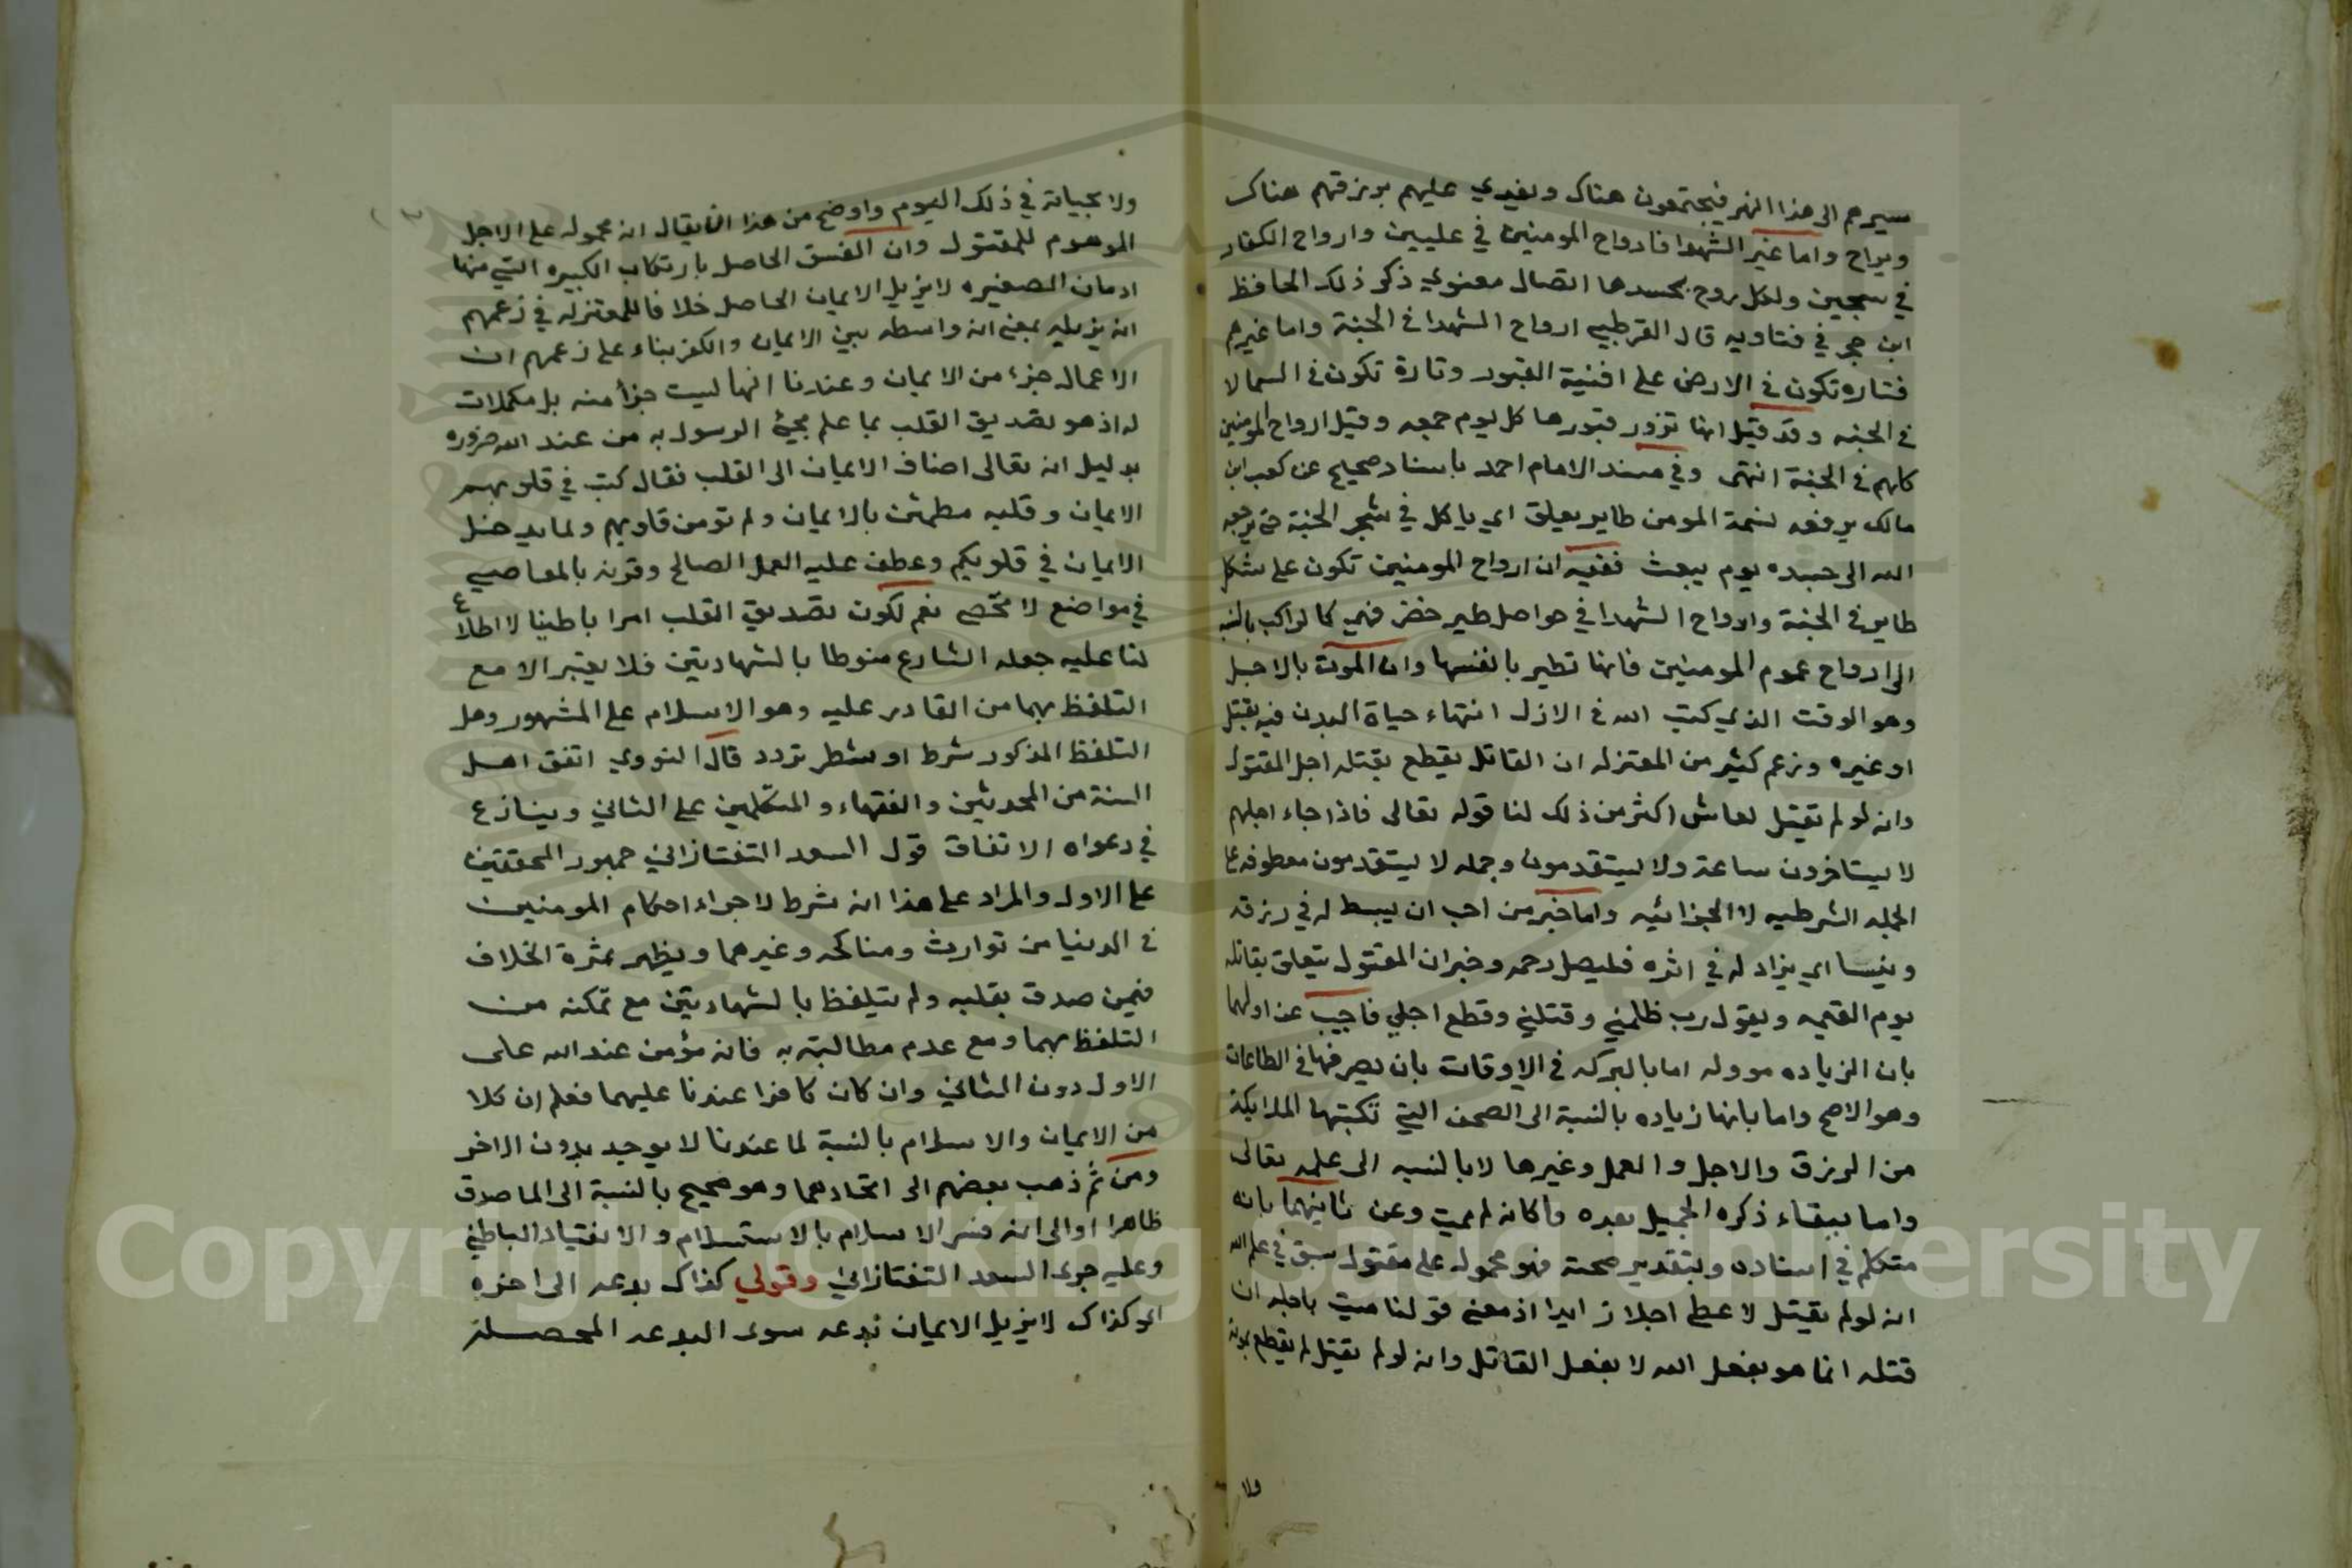 سيرهم الى هذا النهر فيجتمعون هناك ويغدي عليهم برزقهم هناك
ويراح واما غير الشهدا فارواح المومنين في عليين وارواح الكفار
في سجين ولكل روح بجسدها اتصال معنوي ذكر ذلك الحافظ
ابن حجر في فتاويه قال القرطبي ارواح الشهدا في الجنة واما غيرهم
فتاره تكون في الارض على افنية القبور وتارة تكون في السما لا
في الجنه وقد قيل انها تزور قبورها كل يوم جمعه وقيل ارواح المومنين
كلهم في الجنة انتهى وفي مسند الامام احمد باسناد صحيح عن كعب ابن
مالك يرفعه نسمة المومن طاير يعلق اي ياكل في شجر الجنة حتى يرجعه
الله الى جسده يوم يبعث ففيه ان ارواح المومنين تكون على شكل
طاير في الجنة وارواح الشهدا في حواصل طير خضر فهي كالراكب بالنسبه
الى ارواح عموم المومنين فانها تطير بانفسها وان الموت بالاجل
وهو الوقت الذي كتب الله في الازل انتهاء حياة البدن فيه بقتل
او غيره وزعم كثير من المعتزله ان القاتل يقطع بقتله اجل المقتول
وانه لو لم يقتل لعاش اكثر من ذلك لنا قوله تعالى فاذا جاء اجلهم
لا يستاخرون ساعة ولا يستقدمون وجمله لا يستقدمون معطوفه على
الجمله الشرطيه لا الجزائيه واما خبر من احب ان يبسط له في رزقه
وينسا اي يزاد له في اثره فليصل رحمه وخبر ان المقتول يتعلق بقاتله
يوم القيمه ويقول رب ظلمني وقتلني وقطع اجلي فاجيب عن اولهما
بان الزياده مووله اما بالبركه في الاوقات بان يصرفها في الطاعات
وهو الاصح واما بانها زياده بالنسبة الى الصحف التي تكتبها الملايكة
من الرزق والاجل والعمل وغيرها لا بالنسبه الى علمه تعالى
واما ببقاء ذكره الجميل بعده فكانه لم يمت وعن ثانيهما بانه
متكلم في اسناده وبتقدير صحته فهو محمول على مقتول سبق في علم الله
انه لو لم يقتل لاعطي اجلا زايدا اذ معنى قولنا ميت باجله ان
قتله انما هو بفعل الله لا بفعل القاتل وانه لو لم يقتل لم يقطع بموته
ولا
ولا بحياته في ذلك اليوم واوضح من هذا ان يقال انه محمول على الاجل
الموهوم للمقتول وان الفسق الحاصل بارتكاب الكبيره التي منها
ادمان الصغيره لا يزيل الايمان الحاصل خلافا للمعتزله في زعمهم
انه يزيله بمعنى انه واسطه بين الايمان والكفر بناء على زعمهم ان
الاعمال جزء من الايمان وعندنا انها ليست جزأ منه بل مكملات
له اذ هو تصديق القلب بما علم مجيء الرسول به من عند الله ضروره
بدليل انه تعالى اضاف الايمان الى القلب فقال كتب في قلوبهم
الايمان وقلبه مطمئن بالايمان ولم تومن قلوبهم ولما يدخل
الايمان في قلوبكم وعطف عليه العمل الصالح وقرنه بالمعاصي
في مواضع لا تحصى نعم لكون تصديق القلب امرا باطنيا لا اطلاع
لنا عليه جعله الشارع منوطا بالشهادتين فلا يعتبر الا مع
التلفظ بهما من القادر عليه وهو الاسلام على المشهور وهل
التلفظ المذكور شرط او شطر تردد قال النووي اتفق اهل
السنة من المحدثين والفقهاء والمتكلمين على الثاني وينازع
في دعواه الاتفاق قول السعد التفتازاني جمهور المحققين
على الاول والمراد على هذا انه شرط لاجراء احكام المومنين
في الدنيا من توارث ومناكحه وغيرهما ويظهر ثمرة الخلاف
فيمن صدق بقلبه ولم يتلفظ بالشهادتين مع تمكنه من
التلفظ بهما ومع عدم مطالبته به فانه مؤمن عند الله على
الاول دون الثاني وان كان كافرا عندنا عليهما فعلم ان كلا
من الايمان والاسلام بالنسبة لما عندنا لا يوجد بدون الاخر
ومن ثم ذهب بعضهم الى اتحادهما وهو صحيح بالنسبة الى الماصدق
ظاهرا او الى انه فسر الاسلام بالاستسلام والانقياد الباطني
وعليه جرى السعد التفتازاني وقولي كذاك بدعه الى اخره
اي وكذاك لا يزيل الايمان بدعه سوى البدعه المحصلة
Copyright © King Saud University